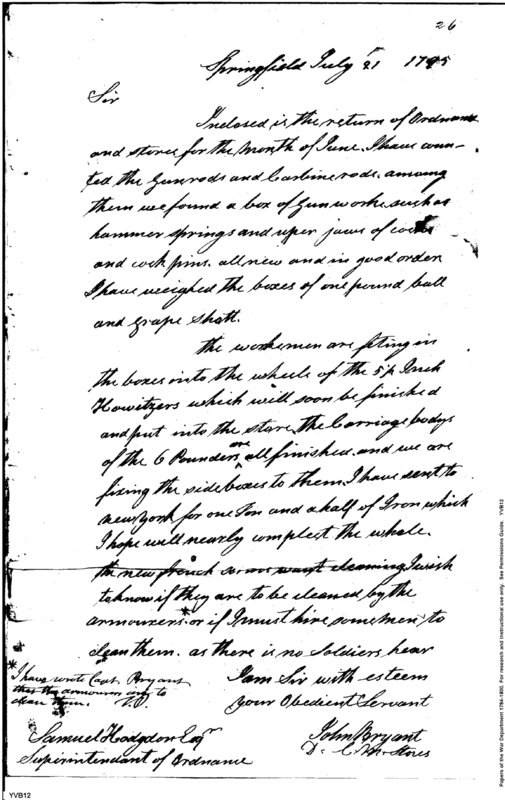 26
Springfield July 21 1795
Sir
Inclosed is the return of Ordnance
and stores for the Month of June. I have coun-
ted the Gunrods and Carbine rods. among
them we found a box of Gunworks such as
hammer springs and uper jaws of cocks
and cock pins. all new and in good order
I have weighed the boxes of one pound ball
and grape shott.
the workemen are fiting in
the boxes into the wheels of the 5½ Inch
Howitzers which will soon be finished
and put into the store the Carriage bodys
of the 6 Pounders are all finished. and we are
fixing the sideboxes to them. I have sent to
newyork for one Ton and a half of Iron which
I hope will nearly complect the whole.
the new french want cleaning I wish
to know if they are to be cleaned by the
armourers. or if I must hire some men to
clean them. as there is no Soldiers hear
* I have wrote Capt. Bryant
that the armourers are to
clean them.
I am Sir with esteem
your Obedient Servant
John Bryant
D. C. M. Stores
Samuel Hodgdon Esqr
Superintendant of Ordnance
YVB12
Papers of the War Department 1784-1800. For research and instructional use only. See Permissions Guide. YVB12